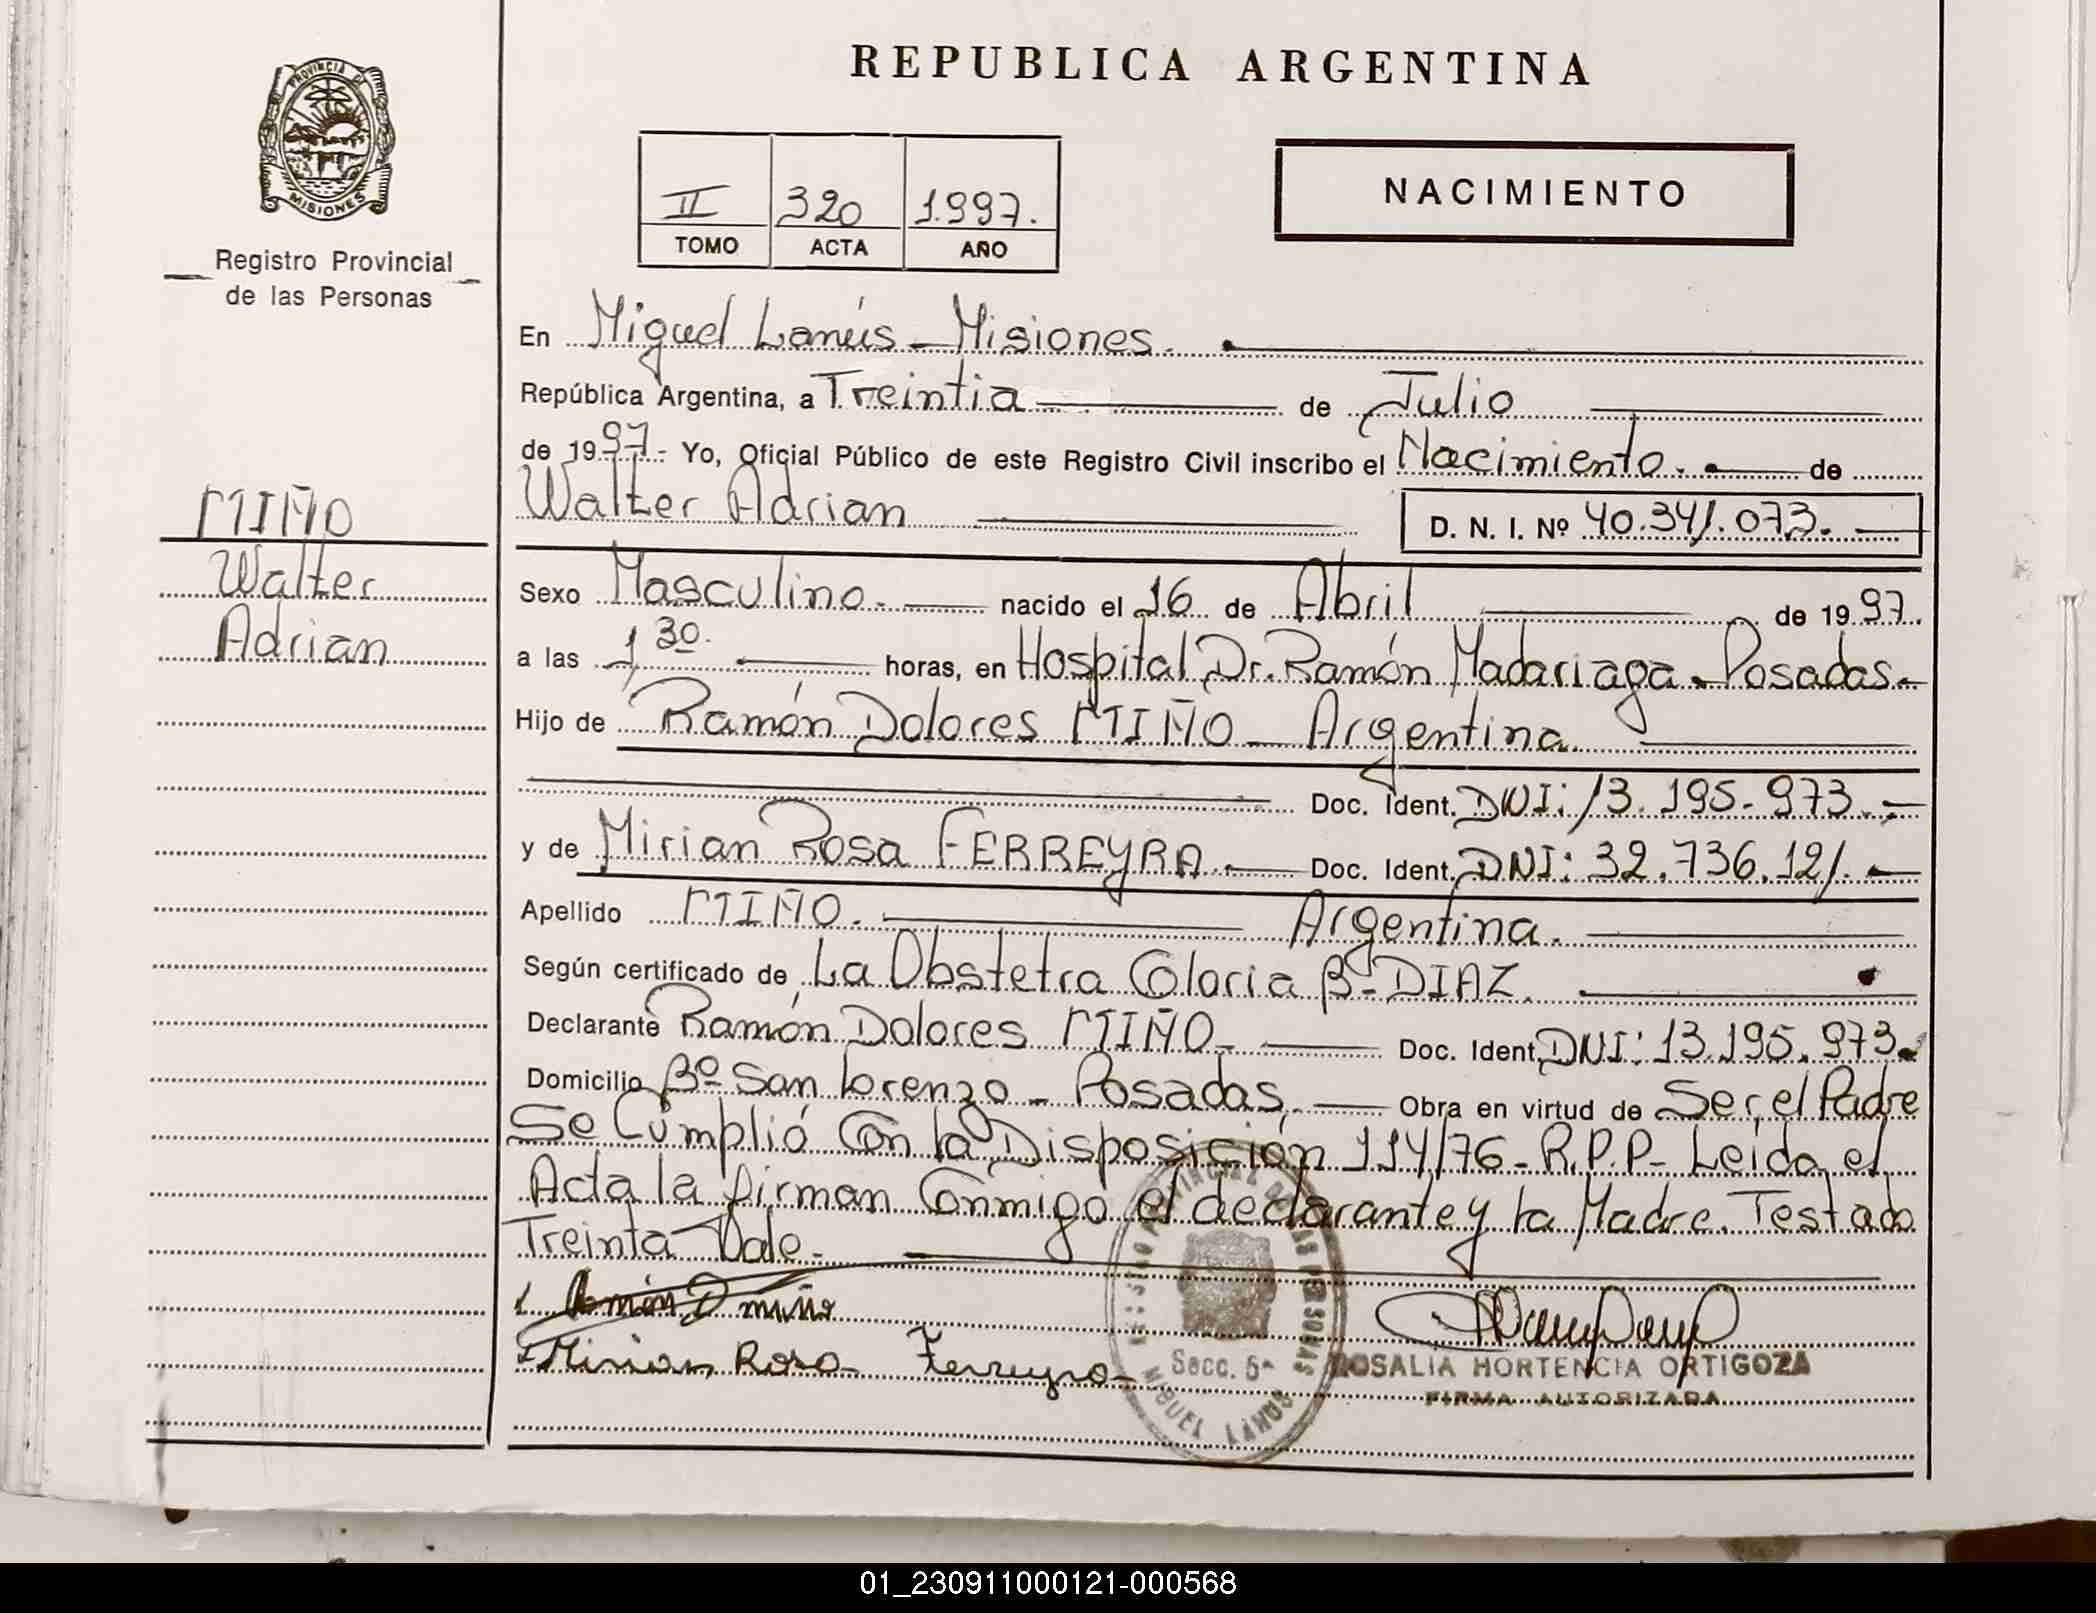 REPUBLICA ARGENTINA
PROVINCIA DE
MISIONES
Registro Provincial
de las Personas
II 320 1.997.
TOMO ACTA AÑO
NACIMIENTO
En Miguel Lanús - Misiones.
República Argentina, a Treintia de Julio
de 1997.- Yo, Oficial Público de este Registro Civil inscribo el Nacimiento. de
Walter Adrian D. N. I. Nº 40.341.073.
MIÑO
Walter
Adrian
Sexo Masculino. nacido el 16 de Abril de 1997.
a las 1,30. horas, en Hospital Dr. Ramón Madariaga - Posadas.-
Hijo de Ramón Dolores MIÑO - Argentina.
Doc. Ident. DNI: 13.195.973.-
y de Mirian Rosa FERREYRA. Doc. Ident. DNI: 32.736.121.
Apellido MIÑO. Argentina.
Según certificado de La Obstetra Gloria B. DIAZ.
Declarante Ramón Dolores MIÑO. Doc. Ident. DNI: 13.195.973.
Domicilio Bº San Lorenzo - Posadas. Obra en virtud de Ser el Padre
Se Cumplió Con la Disposición 114/76 - R.P.P- Leída el
Acta la firman Conmigo el declarante y la Madre. Testado
Treinta Vale.
Ramón D miño
Mirian Rosa Ferreyra
REGISTRO PROVINCIAL DE LAS PERSONAS
Secc. 5ª
MIGUEL LANUS
ROSALIA HORTENCIA ORTIGOZA
FIRMA AUTORIZADA
01_230911000121-000568